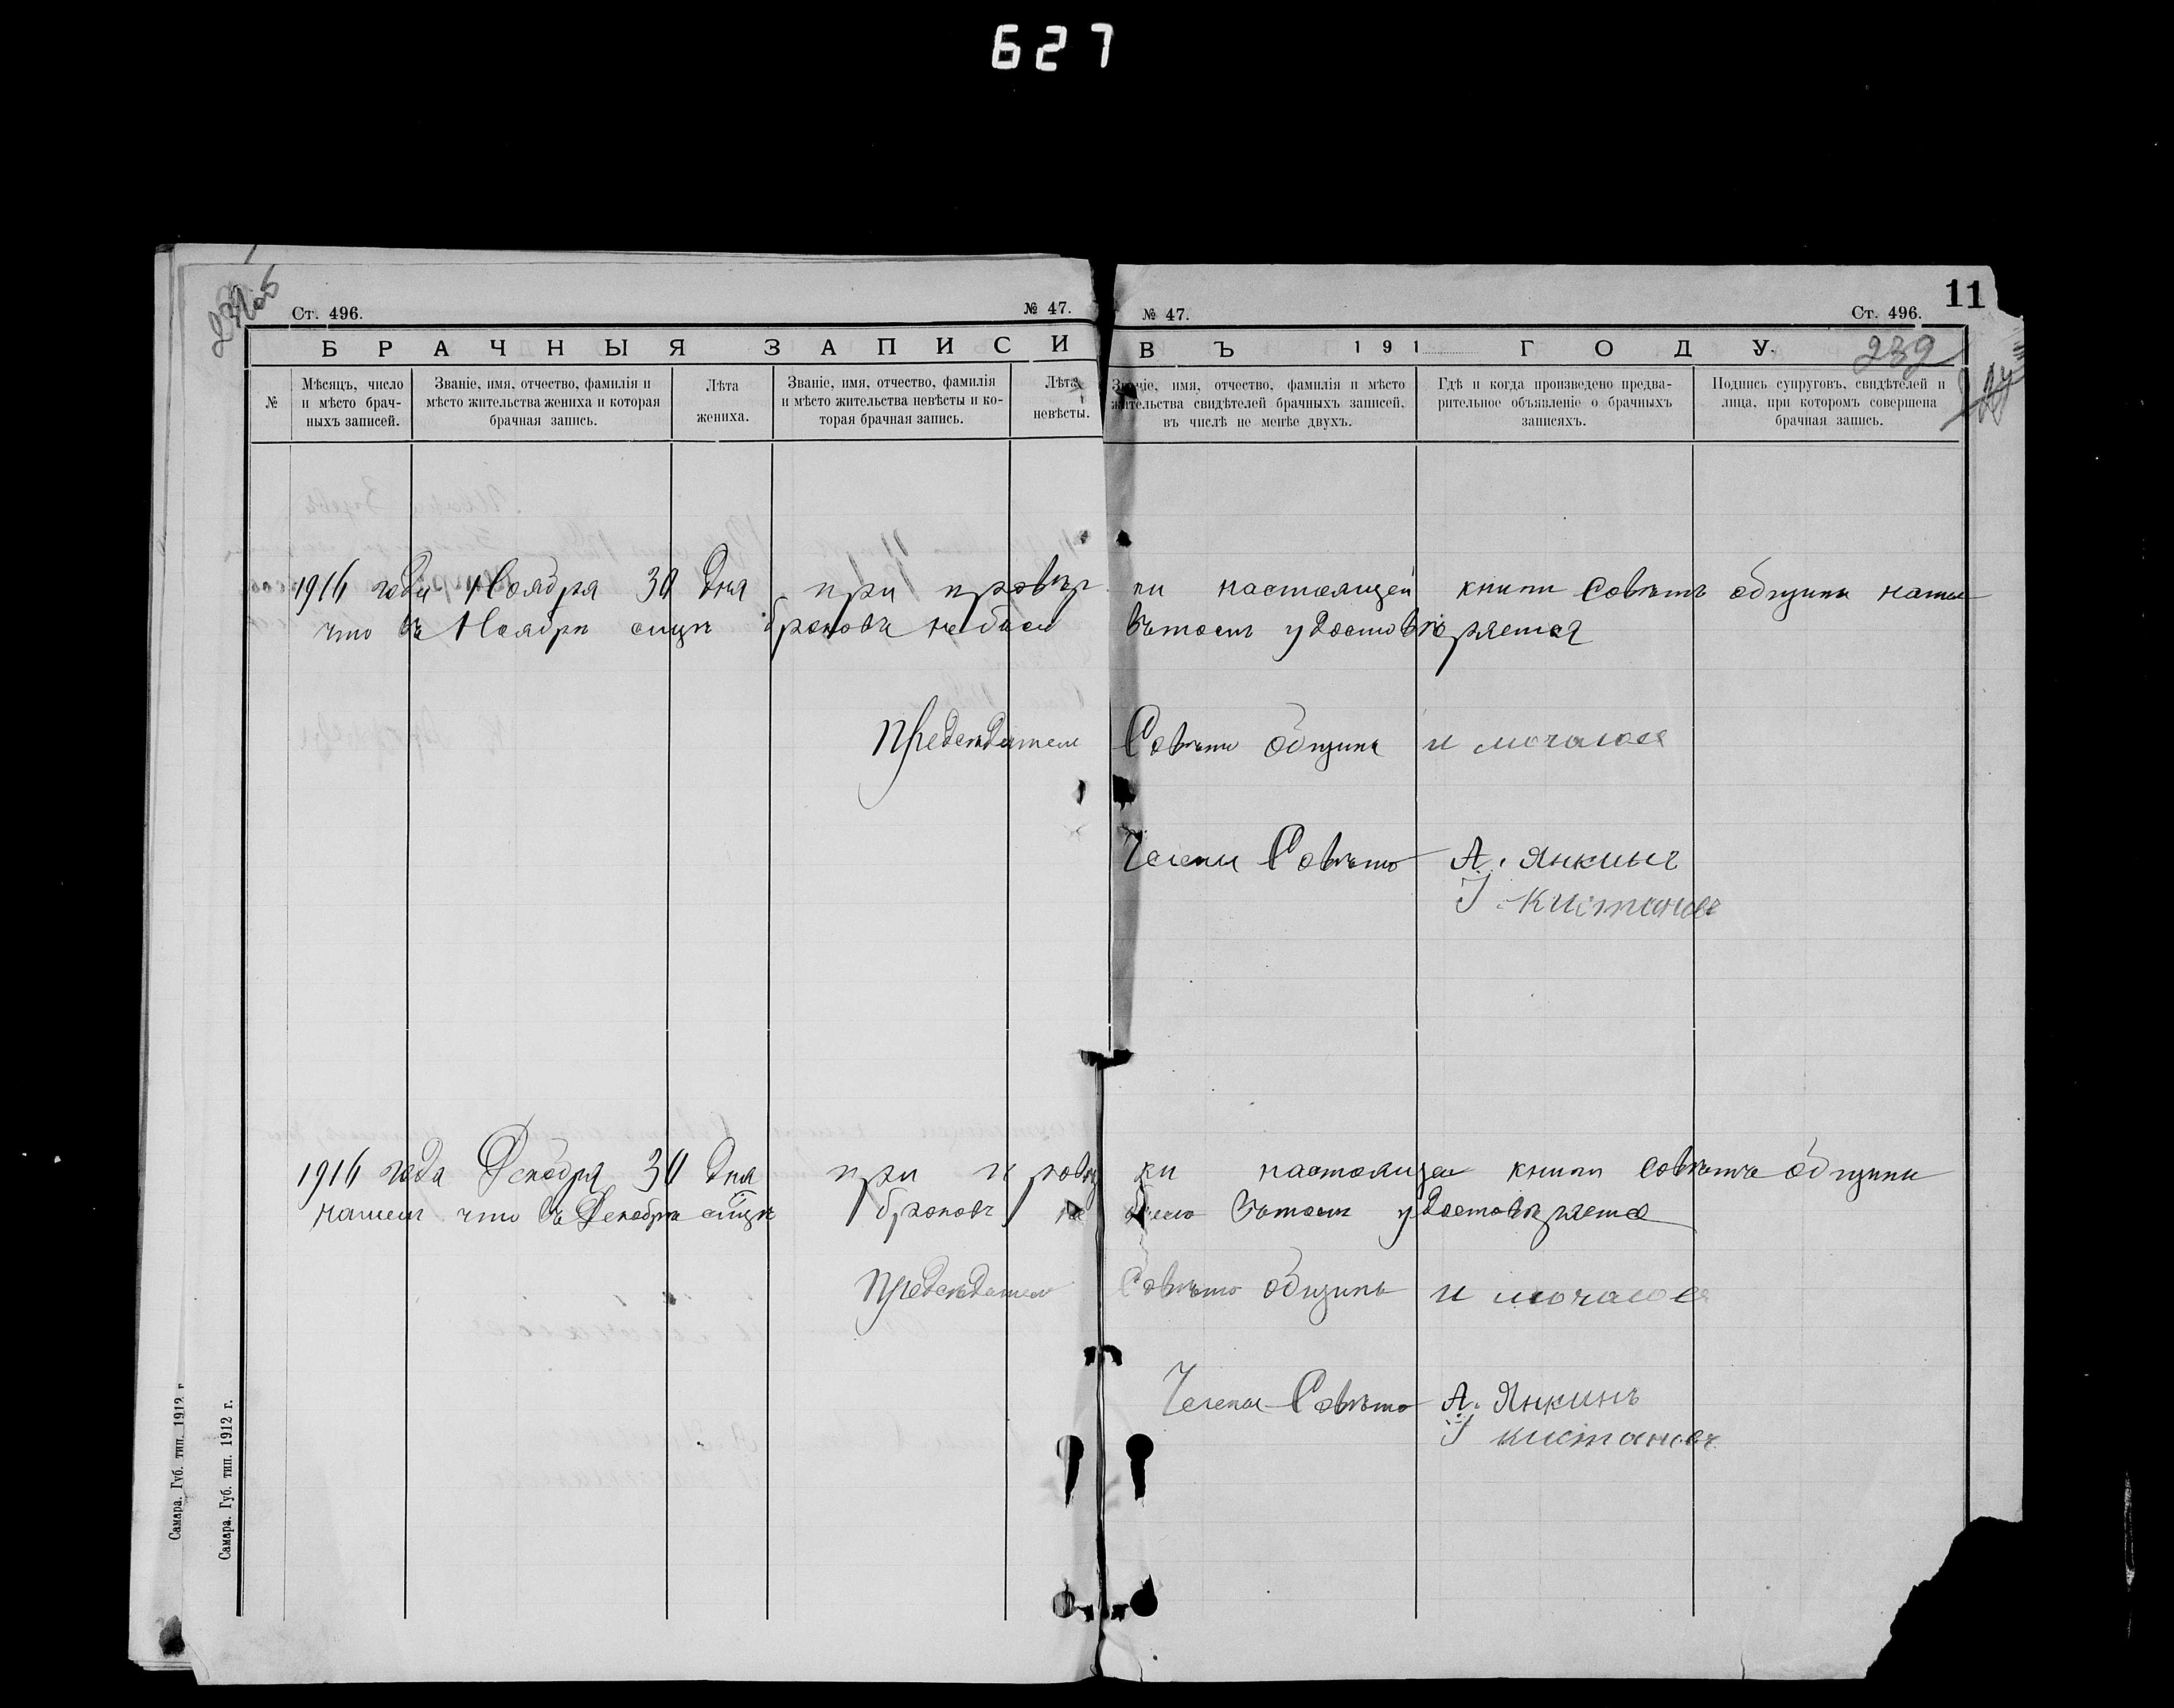 627
Ст. 496.
№ 47.
№ 47.
Ст. 496.
11
БРАЧНЫЯ ЗАПИСИ
ВЪ 191 ГОДУ.
239
№
Мѣсяцъ, число и мѣсто брачныхъ записей.
Званіе, имя, отчество, фамилія и мѣсто жительства жениха и которая брачная запись.
Лѣта жениха.
Званіе, имя, отчество, фамилія и мѣсто жительства невѣсты и которая брачная запись.
Лѣта невѣсты.
Званіе, имя, отчество, фамилія и мѣсто жительства свидѣтелей брачныхъ записей, въ числѣ не менѣе двухъ.
Гдѣ и когда произведено предварительное объявленіе о брачныхъ записяхъ.
Подпись супруговъ, свидѣтелей и лица, при которомъ совершена брачная запись.
1916 года Ноября 30 дня при провѣрки настоящей книги Совѣтъ общины нашел
что въ Ноябри браковъ небыло вътомъ удостовѣряется
Председатель Совѣта общины
Члены Совѣта А. Янкинъ
І Кистановъ
1916 года Декабря 30 дня при провѣрки настоящей книги Совѣтъ общины
нашел что въ Декабри браковъ не было вътомъ удостовѣряется
Председатель Совѣта общины
Члены Совѣта А. Янкинъ
І Кистановъ
Самара. Губ. тип. 1912 г.
Самара. Губ. тип. 1912 г.